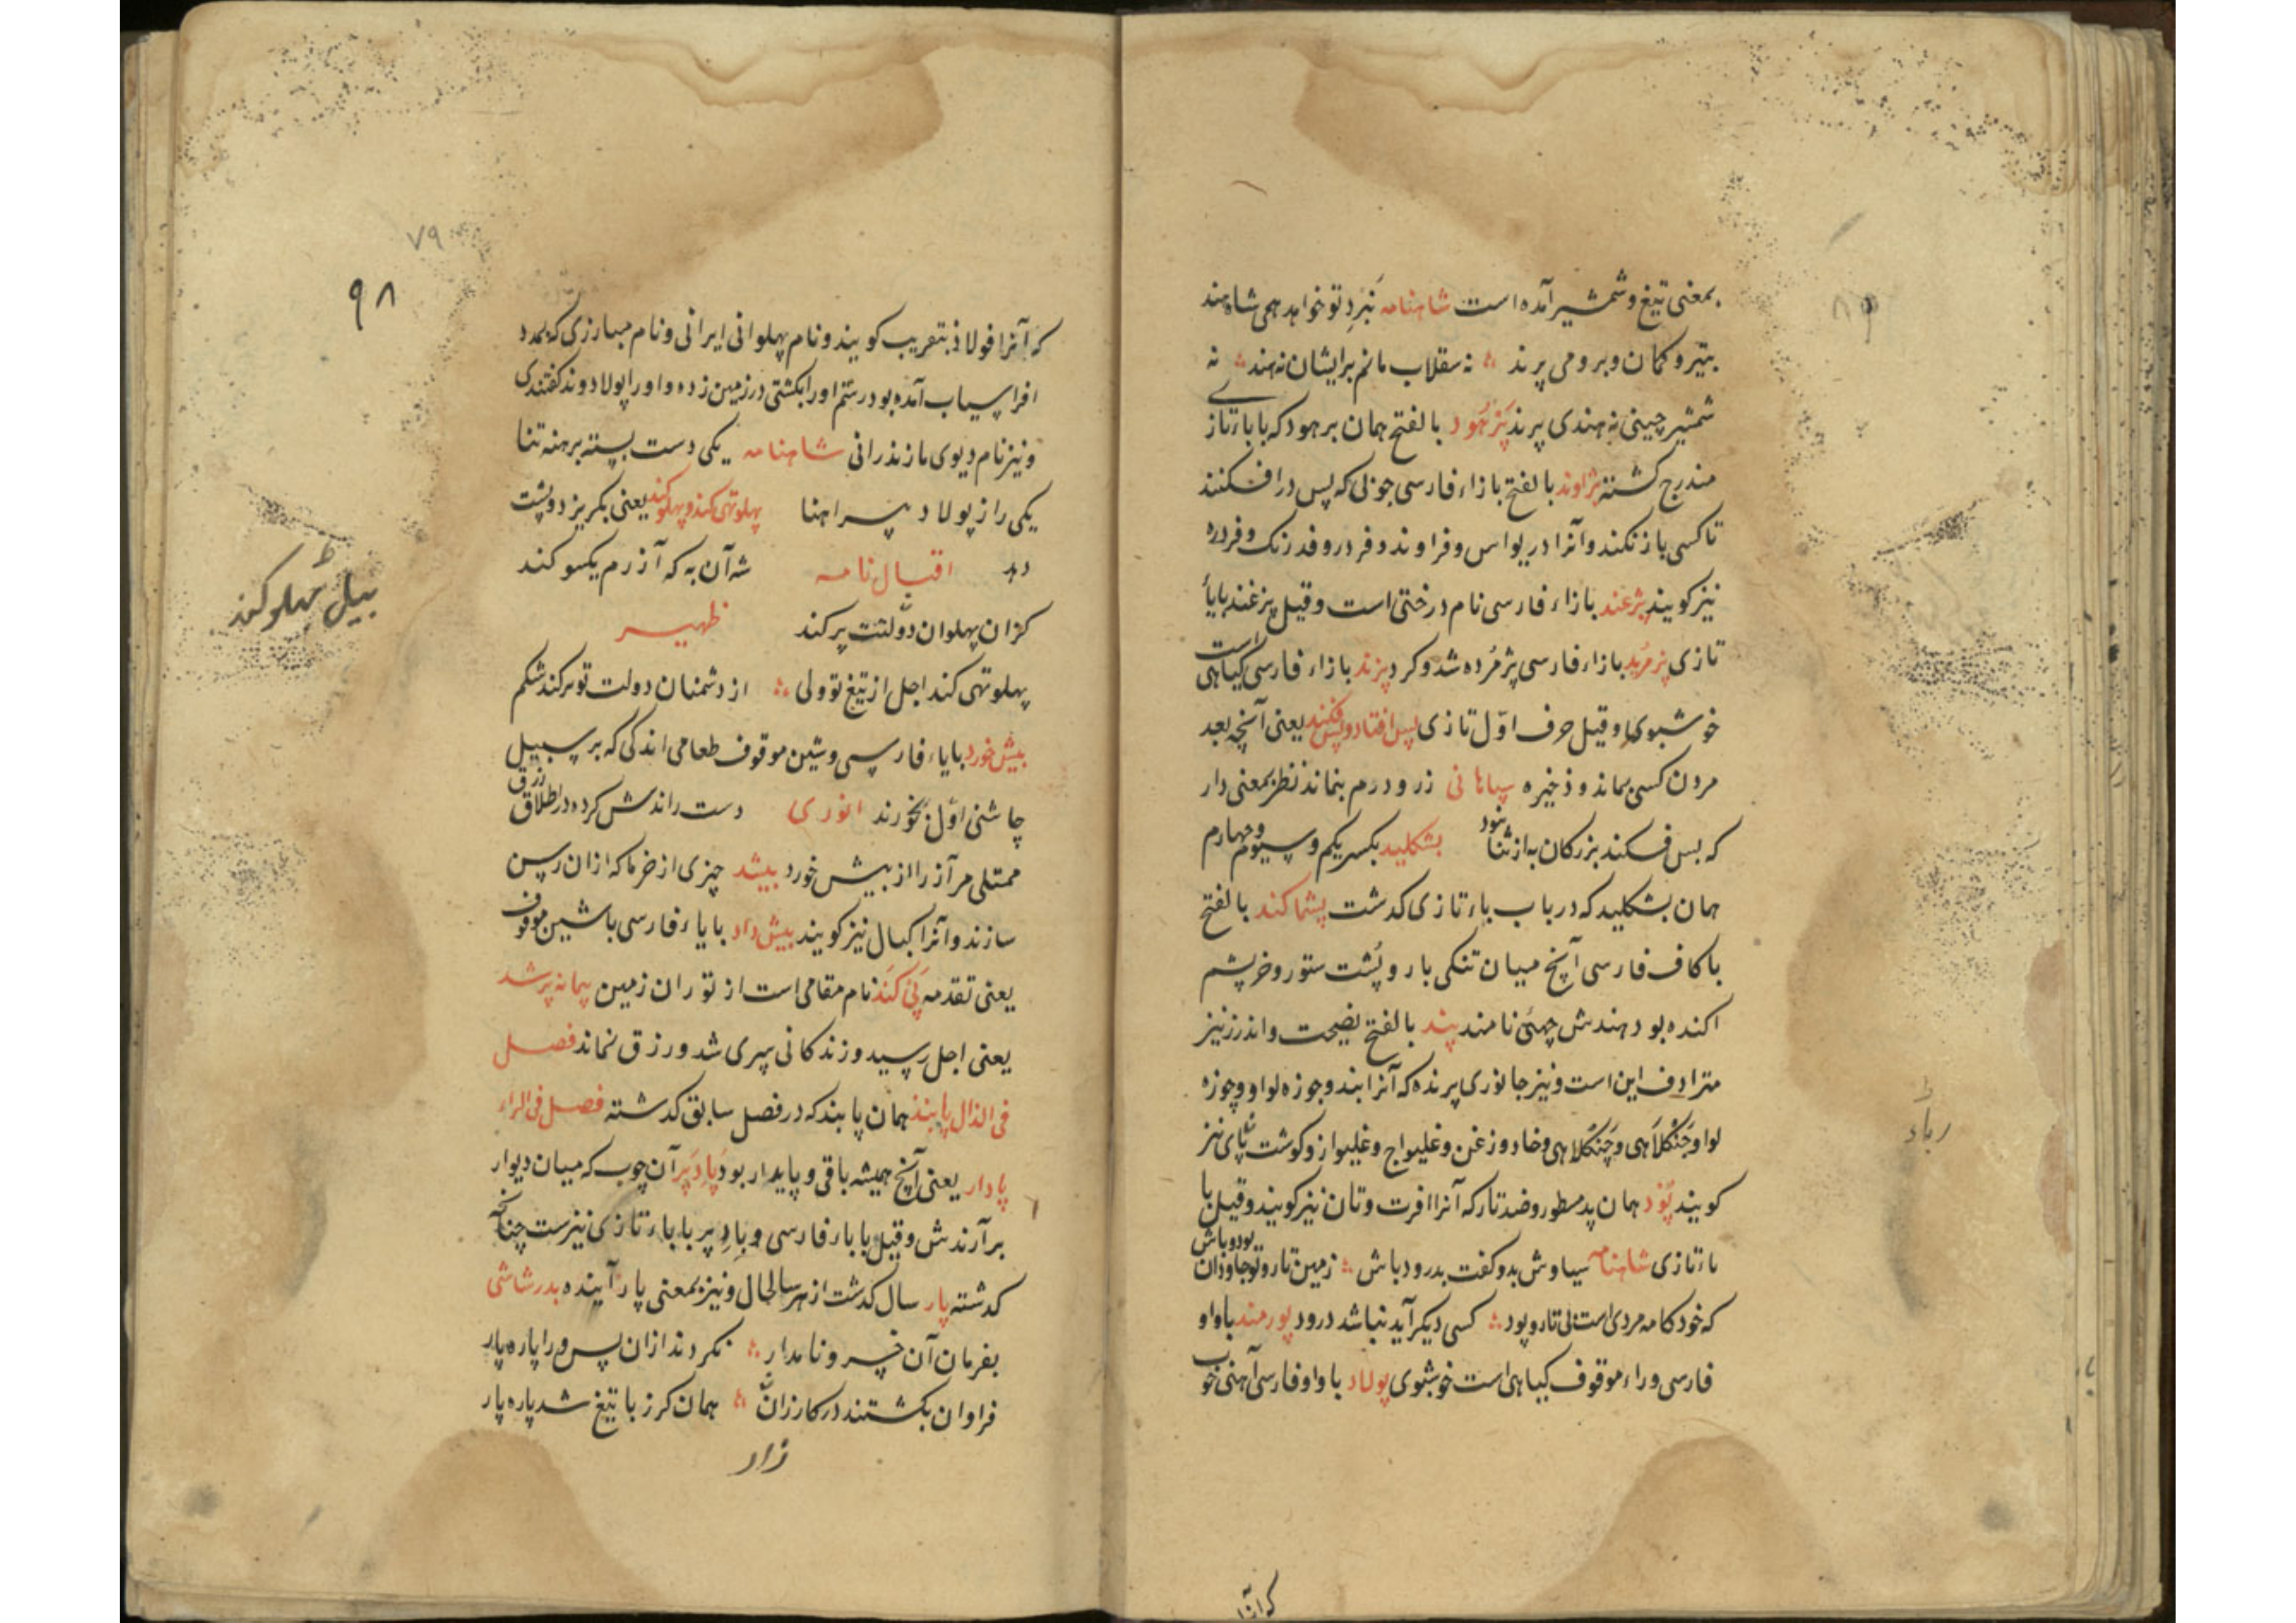 بمعنی تیغ و شمشیر آمده است شاهنامه نبرد تو خواهد همی شاه هند
بتیر و کمان و برومی پرند نه سقلاب مانم بر ایشان نه هند نه
شمشیر چینی نه هندی پرند پزهود بالفتح همان برهود که با باء تازی
مندرج گشته پژاوند بالفتح بازاء فارسی چوبی که پس در افکنند
تا کسی باز نکند و آنرا دریواس و فراوند و فردر و فدرنک و فردره
نیز کویند پژغند بازاء فارسی نام درختی است و قیل پزغند بایاء
تازی پژمرید بازاء فارسی پژمرده شد و کرد پزند بازاء فارسی کیاهی است
خوشبوی و قیل حرف اوّل تازی پس افتاد و پس فکند یعنی آنچه بعد
مردن کسی بماند و ذخیره سپاهانی زر و درم بنماند نظر بمعنی دار
که پس فکند بزرکان به از ثنا نبود بشکلید بکسر یکم و سیوم و چهارم
همان بشکلید که در باب باء تازی کدشت پشماکند بالفتح
با کاف فارسی آنچ میان تنکی بار و پشت ستور و خر پشم
اکنده بود هندش چهئی نامند پند بالفتح نصیحت و اندرز نیز
مترادف این است و نیز جانوری پرنده که آنرا بند و جوزه لوا و چوزه
لوا و جنکلاهی و چنکلاهی و خاد و زغن و غلیواج و غلیواز و کوشت ربای نیز
کویند پود همان پد مسطور و ضد تار که آنرا افرت و تان نیز کویند و قیل با
باء تازی شاهنامه سیاوش بدو کفت بدرود باش زمین تار و تو جاودان بود باش
که خودکامه مردی است بی تار و پود کسی دیکر آید نباشد درود پورمند با واو
فارسی و راء موقوف کیاهی است خوشبوی پولاد با واو فارسی آهنی خوب
که آنرا
رباد
۷۹
۹۸
که آنرا فولاذ بتعریب کویند و نام پهلوانی ایرانی و نام مبارزی که بمدد
افراسیاب آمده بود رستم او را بکشتی در زمین زده و او را پولادوند کفتندی
و نیز نام دیوی مازندرانی شاهنامه یکی دست بسته برهنه تنا
یکی را ز پولاد پیراهنا پهلو تهی کند و پهلو کند یعنی بکریزد و پشت
دهد اقبال نامه شه آن به که آزرم یکسو کند
کزان پهلوان دولتت پر کند ظهیر
پهلو تهی کند اجل از تیغ تو ولی از دشمنان دولت تو پر کند شکم
پیش خورد بایاء فارسی و شین موقوف طعامی اندکی که بر سبیل
چاشنی اوّل بخورند انوری دست رادش کرده در اطلاق رزق
ممتلی مر آز را از پیش خورد پیشد چیزی از خرما که ازان رسن
سازند و آنرا کبال نیز کویند پیش داد بایاء فارسی با شین موقوف
یعنی تقدمه پی کند نام مقامی است از توران زمین پیمانه پر شد
یعنی اجل رسید و زندکانی سپری شد و رزق نماند فصل
فی الذال پابند همان پابند که در فصل سابق کدشته فصل فی الراء
پادار یعنی آنچ همیشه باقی و پایدار بود پادپر آن چوب که میان دیوار
برآرندش و قیل با باء فارسی و بادپر با باء تازی نیز ست چنانچه
کدشته پار سال کدشت از هر سالحال و نیز بمعنی پاره آینده بدر شاشی
بفرمان آن خسرو نامدار بکردند ازان پس ورا پاره پار
فراوان بکشتند در کارزار همان کرز با تیغ شد پاره پار
زار
پهلو کند